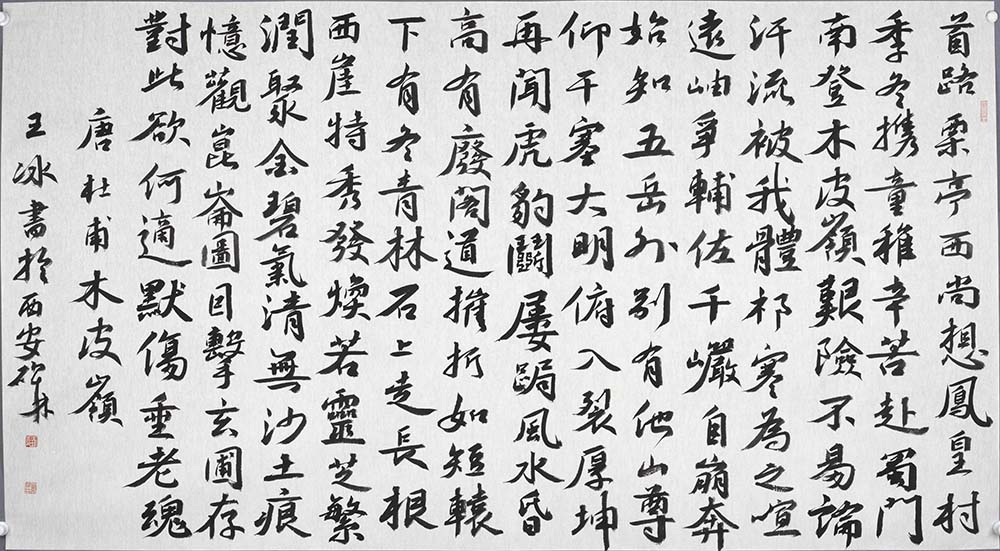 首路栗亭西尚想鳳皇村
季冬攜童稚辛苦赴蜀門
南登木皮嶺艱險不易論
汗流被我體祁寒為之喧
遠岫爭輔佐千巖自崩奔
始知五岳外別有他山尊
仰干塞大明俯入裂厚坤
再聞虎豹鬬屡跼風水昏
高有廢閣道摧折如短轅
下有冬青林石上走長根
西崖特秀發煥若靈芝繁
潤聚金碧氣清無沙土痕
憶觀崑崙圖目擊玄圃存
對此欲何適默傷垂老魂
唐杜甫木皮嶺
王冰書於西安碑林